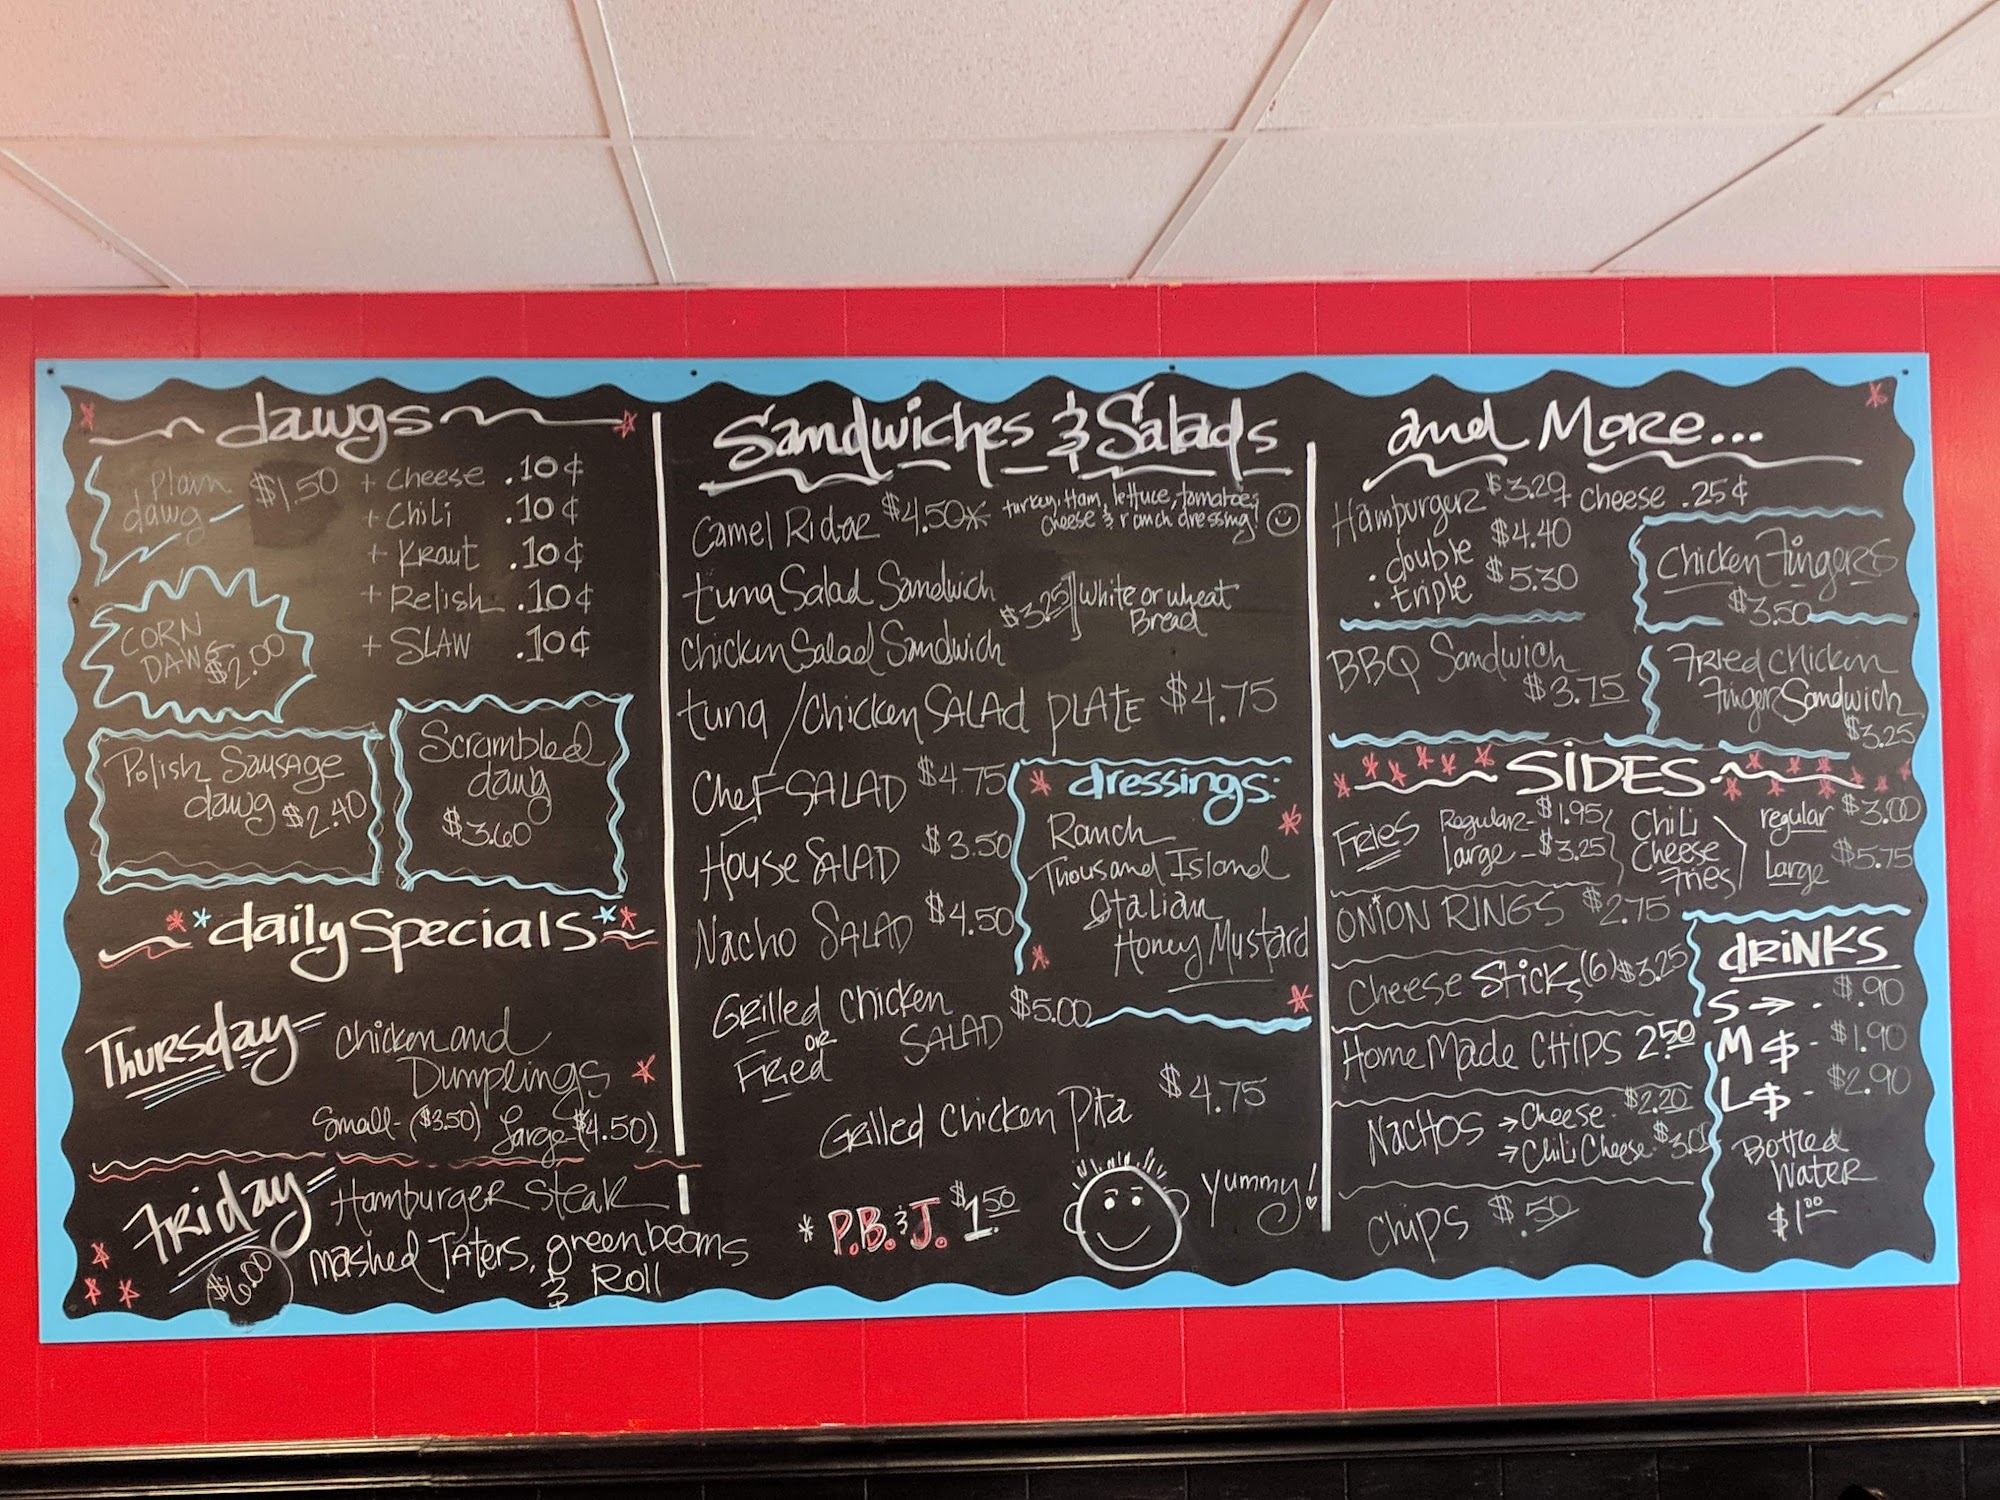 dawgs
Plain
dawg
$1.50
+ Cheese .10¢
+ Chili .10¢
+ Kraut .10¢
+ Relish .10¢
+ SLAW .10¢
CORN
DAWG
$2.00
Polish Sausage
dawg $2.40
Scrambled
dawg
$3.60
daily Specials
Thursday
Chicken and
Dumplings
Small - ($3.50) Large - ($4.50)
Friday
$6.00
Hamburger Steak
mashed Taters, green beans
& Roll
Sandwiches & Salads
Camel Rider $4.50* turkey, Ham, lettuce, tomatoes,
cheese & ranch dressing!
tuna Salad Sandwich
Chicken Salad Sandwich
$3.25 White or wheat
Bread
tuna / Chicken SALAd PLATE $4.75
Chef SALAD $4.75
House SALAD $3.50
Nacho SALAD $4.50
Grilled Chicken
OR
Fried
SALAD $5.00
Grilled Chicken Pita $4.75
* P.B. & J. $1.50
Yummy!
dressings:
Ranch
Thousand Island
Italian
Honey Mustard
and More...
Hamburger $3.29 Cheese .25¢
. double $4.40
. triple $5.30
Chicken Fingers
$3.50
BBQ Sandwich
$3.75
Fried Chicken
Finger Sandwich
$3.25
SIDES
Fries Regular - $1.95
Large - $3.25
Chili
Cheese
Fries
regular $3.00
Large $5.75
ONION RINGS $2.75
Cheese Sticks (6) $3.25
Home Made CHIPS 2.50
NACHOS → Cheese - $2.20
→ Chili Cheese - $3.00
Chips $.50
drinks
S → - $.90
M $ - $1.90
L $ - $2.90
Bottled
Water
$1.00